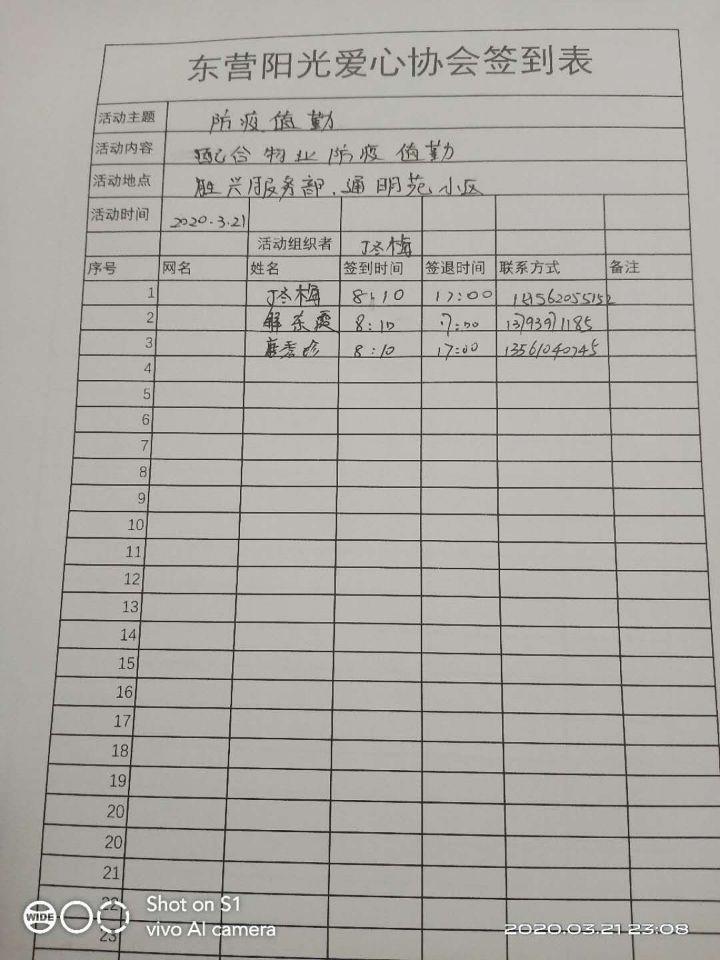 东营阳光爱心协会签到表
活动主题 防疫值勤
活动内容 配合物业防疫值勤
活动地点 胜兴服务部.通明苑小区
活动时间 2020.3.21
活动组织者 丁冬梅
序号 网名 姓名 签到时间 签退时间 联系方式 备注
1 丁冬梅 8:10 17:00
2 解东霞 8:10 17:00 13793971185
3 8:10 17:00 13561040745
4
5
6
7
8
9
10
11
12
13
14
15
16
17
18
19
20
20
21
22
23
WIDE
Shot on S1
vivo AI camera
2020.03.21 23:08